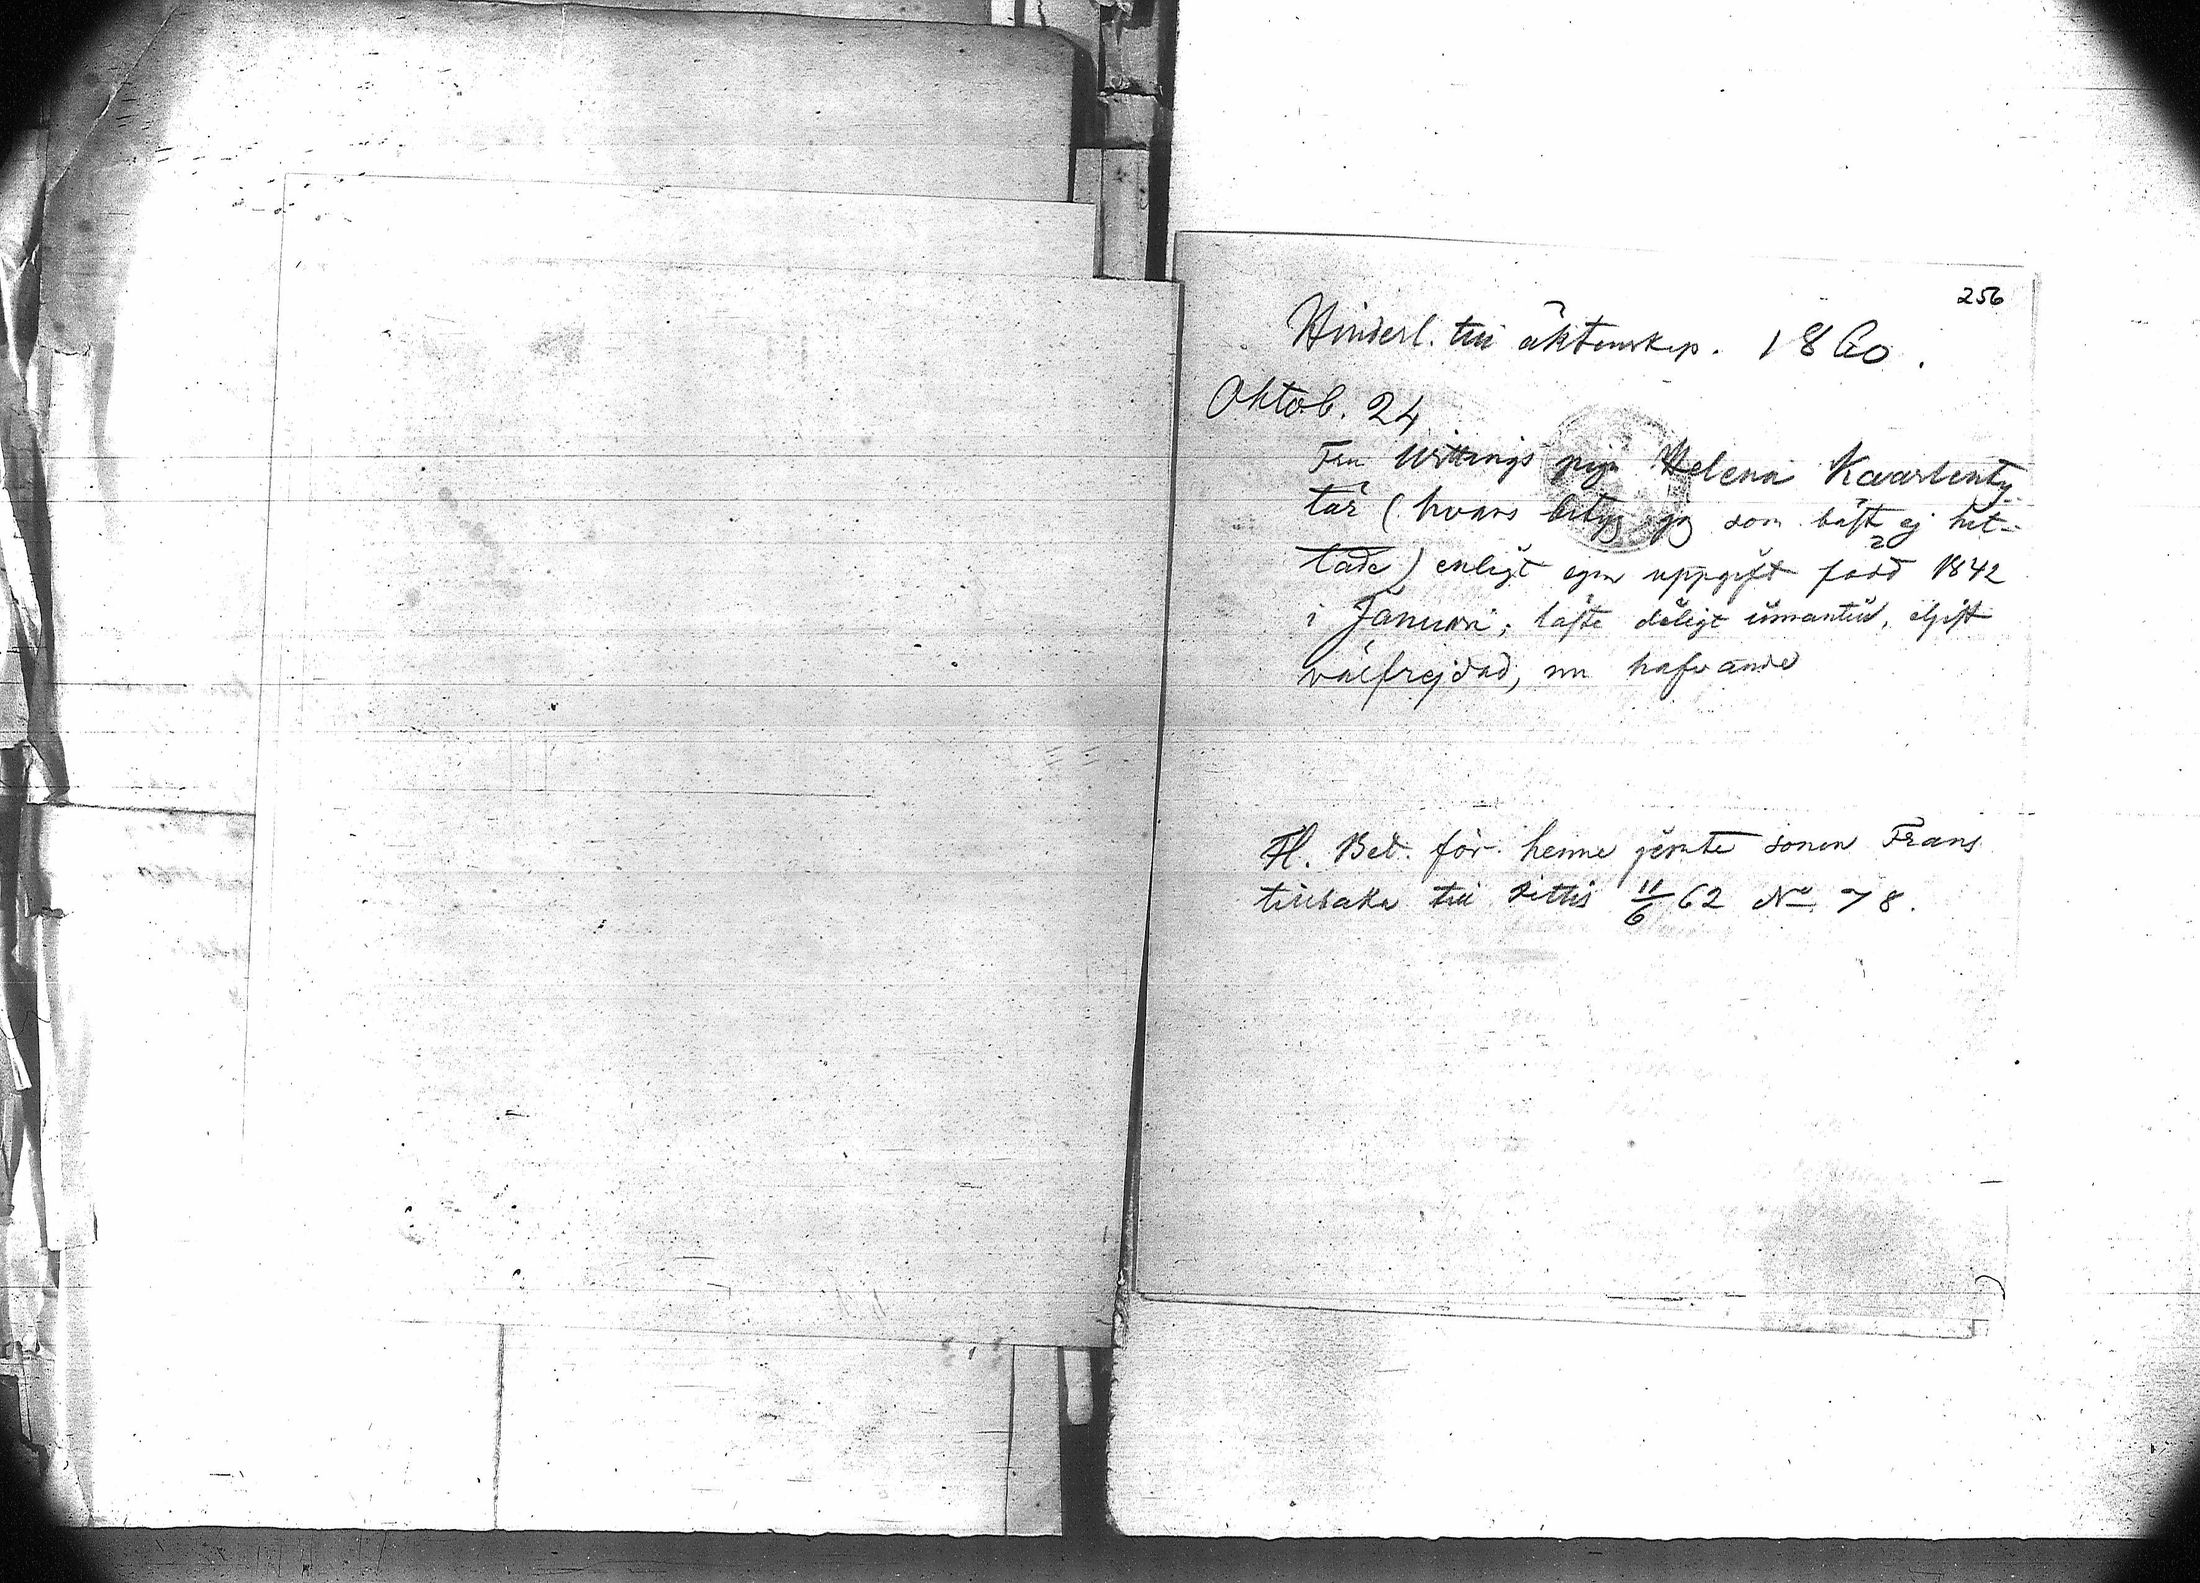 256
Hinderl. till äktenskap. 1860.
Oktob. 24
Fru Wittings piga Helena Kaarlenty
tär (hvars betyg jag som bäst ej hit-
tade) enligt egen uppgift född 1842
i Januari; läste dåligt utantill, ogift
välfrejdad, nu hafvande
Fl. Bet. för henne jemte sonen Frans
tillbaka till Kittis 11/6 62 No 78.